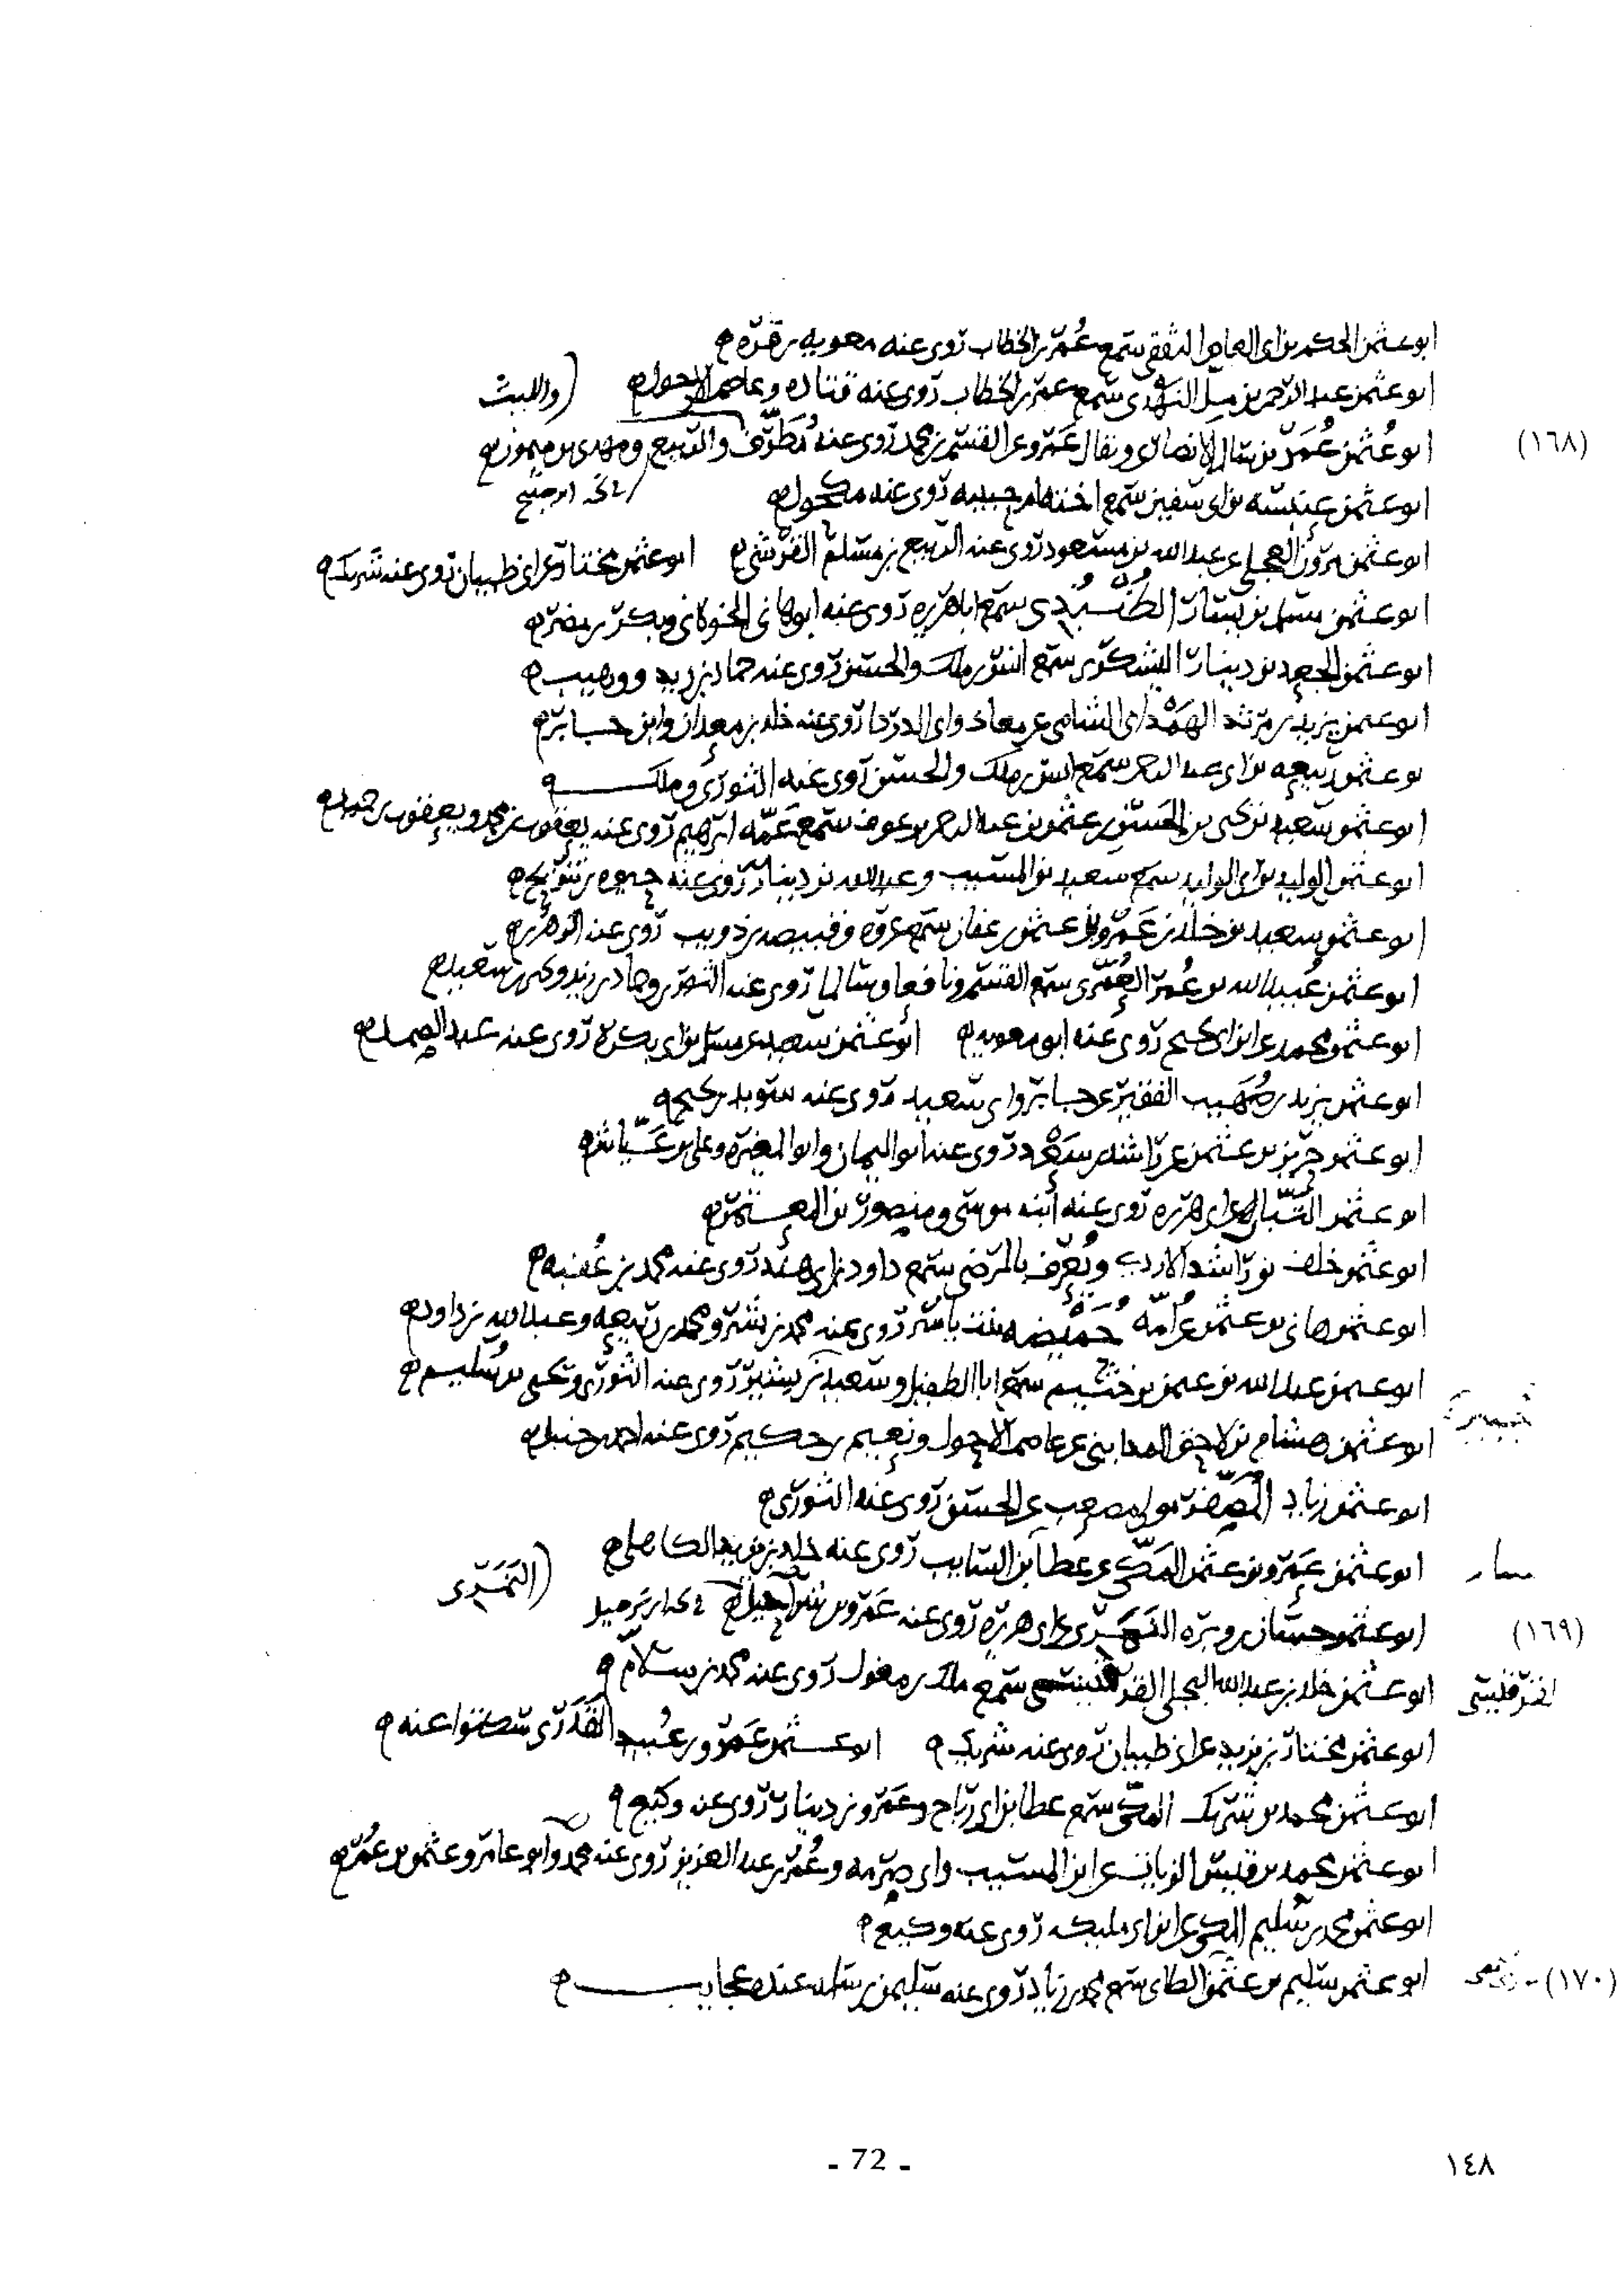 ابو عثمن الحكم بن ابى العاص الثقفى سمع عُمَر بن الخطاب روى عنه معويه بن قره
ابو عثمن عبد الرحمن بن مل النهدى سمع عمر بن الخطاب روى عنه قتاده وعاصم الاحول
(والليث
(١٦٨)
ابو عُثمن عُمَر بن سالم الانصارى ويقال عَمرو عن القسم بن محمد روى عنه مُطَرِّف والربيع ومهدى بن ميمون
ابو عثمن عنبسه بن ابى سفين سمع اخته ام حبيبه روى عنه مكحول
ابو عثمن العجلى عن عبد الله بن مسعود روى عنه الربيع بن مسلم القرشى ابو عثمن مختار عن ابى ظبيان روى عنه شريك
ابو عثمن مسلم بن يسار الطُنْبُذى سمع اباهريره روى عنه ابو هانى الخولانى وبكر بن مضر
ابو عثمن الجعد بن دينار اليشكرى سمع انس بن ملك والحسن روى عنه حماد بن زيد ووهيب
ابو عثمن يزيد بن مرثد الهمْدانى الشامى عن معاذ وابى الدردا روى عنه خلد بن معدان وابن جابر
بو عثمن ربيعه بن ابى عبد الرحمن سمع انس بن ملك والحسن روى عنه الثورى وملك
ابو عثمن سعيد بن يحيى بن الحسن بن عثمن بن عبد الرحمن بن عوف سمع عَمَّه ابرهيم روى عنه يعقوب بن محمد ويعقوب بن حميد
ابو عثمن الوليد بن ابى الوليد سمع سعيد بن المسيب وعبد الله بن دينار روى عنه حيوه بن شريح
ابو عثمن سعيد بن خلد بن عَمرو بن عثمن بن عفان سمع عروه وقبيصه بن ذويب روى عنه الزهرى
ابو عثمن عُبيد الله بن عُمر العُمَرى سمع القسم ونافعا وسالما روى عنه الثورى وحماد بن زيد ويحيى بن سعيد
ابو عثمن محمد عن ابن ابى نجيح روى عنه ابو معويه ابو عثمن سعيد عن مسلم بن ابى بكره روى عنه عبد الصمد
ابو عثمن يزيد بن صُهَيب الفقير عن جابر وابى سعيد روى عنه سويد بن نجيح
ابو عثمن حريز بن عثمن عن راشد بن سعْد روى عنه ابو اليمان وابو المغيره وعلى بن عَيّاش
ابو عثمن التبّان عن ابى هريره روى عنه ابنه موسى ومنصور بن المعتمر
ابو عثمن خلف بن راشد ويُعرف بالمرضى سمع داود بن ابى هند روى عنه محمد بن عُقبه
ابو عثمن هانى بن عثمن عن اُمّه حُمَيْضه بنت ياسر روى عنه محمد بن بشر ومحمد بن ربيعه وعبد الله بن داود
ابو عثمن عبد الله بن عثمن بن خثيم سمع ابا الطفيل وسعيد بن جبير روى عنه الثورى ويحيى بن سُليم
ابو عثمن هشام بن لاحق المداينى عن عاصم الاحول ونعيم بن حكيم روى عنه احمد بن حنبل
ابو عثمن زياد المُصَفِّر مولى مصعب عن الحسن روى عنه الثورى
ابو عثمن عَمرو بن عثمن المكّى عن عطا بن السايب روى عنه خلد بن يزيد الكاهلى
(النَمَرى
(١٦٩)
ابو عثمن حسان بن وبره عن ابى هريره روى عنه عَمرو بن شراحيل
القرقيسى
ابو عثمن خلد بن عبد الله البجلى سمع ملك بن مغول روى عنه محمد بن سلام
ابو عثمن مختار بن يزيد عن ابى ظبيان روى عنه شريك ابو عثمن عَمرو بن عُبيد القَدَرى سكتوا عنه
ابو عثمن محمد بن شريك المكّى سمع عطا بن ابى رباح وعَمرو بن دينار روى عنه وكيع
ابو عثمن محمد بن قيس الزيات عن ابن المسيب وابى صرمه وعُمر بن عبد العزيز روى عنه محمد وابو عامر وعثمن بن عُمر
ابو عثمن محمد بن سُليم المكى عن ابن ابى مليكه روى عنه وكيع
(١٧٠)
ابو عثمن سليم بن عثمن الطاى سمع محمد بن زياد روى عنه سليمن بن سلمه عنده عجايب
- 72 -
١٤٨